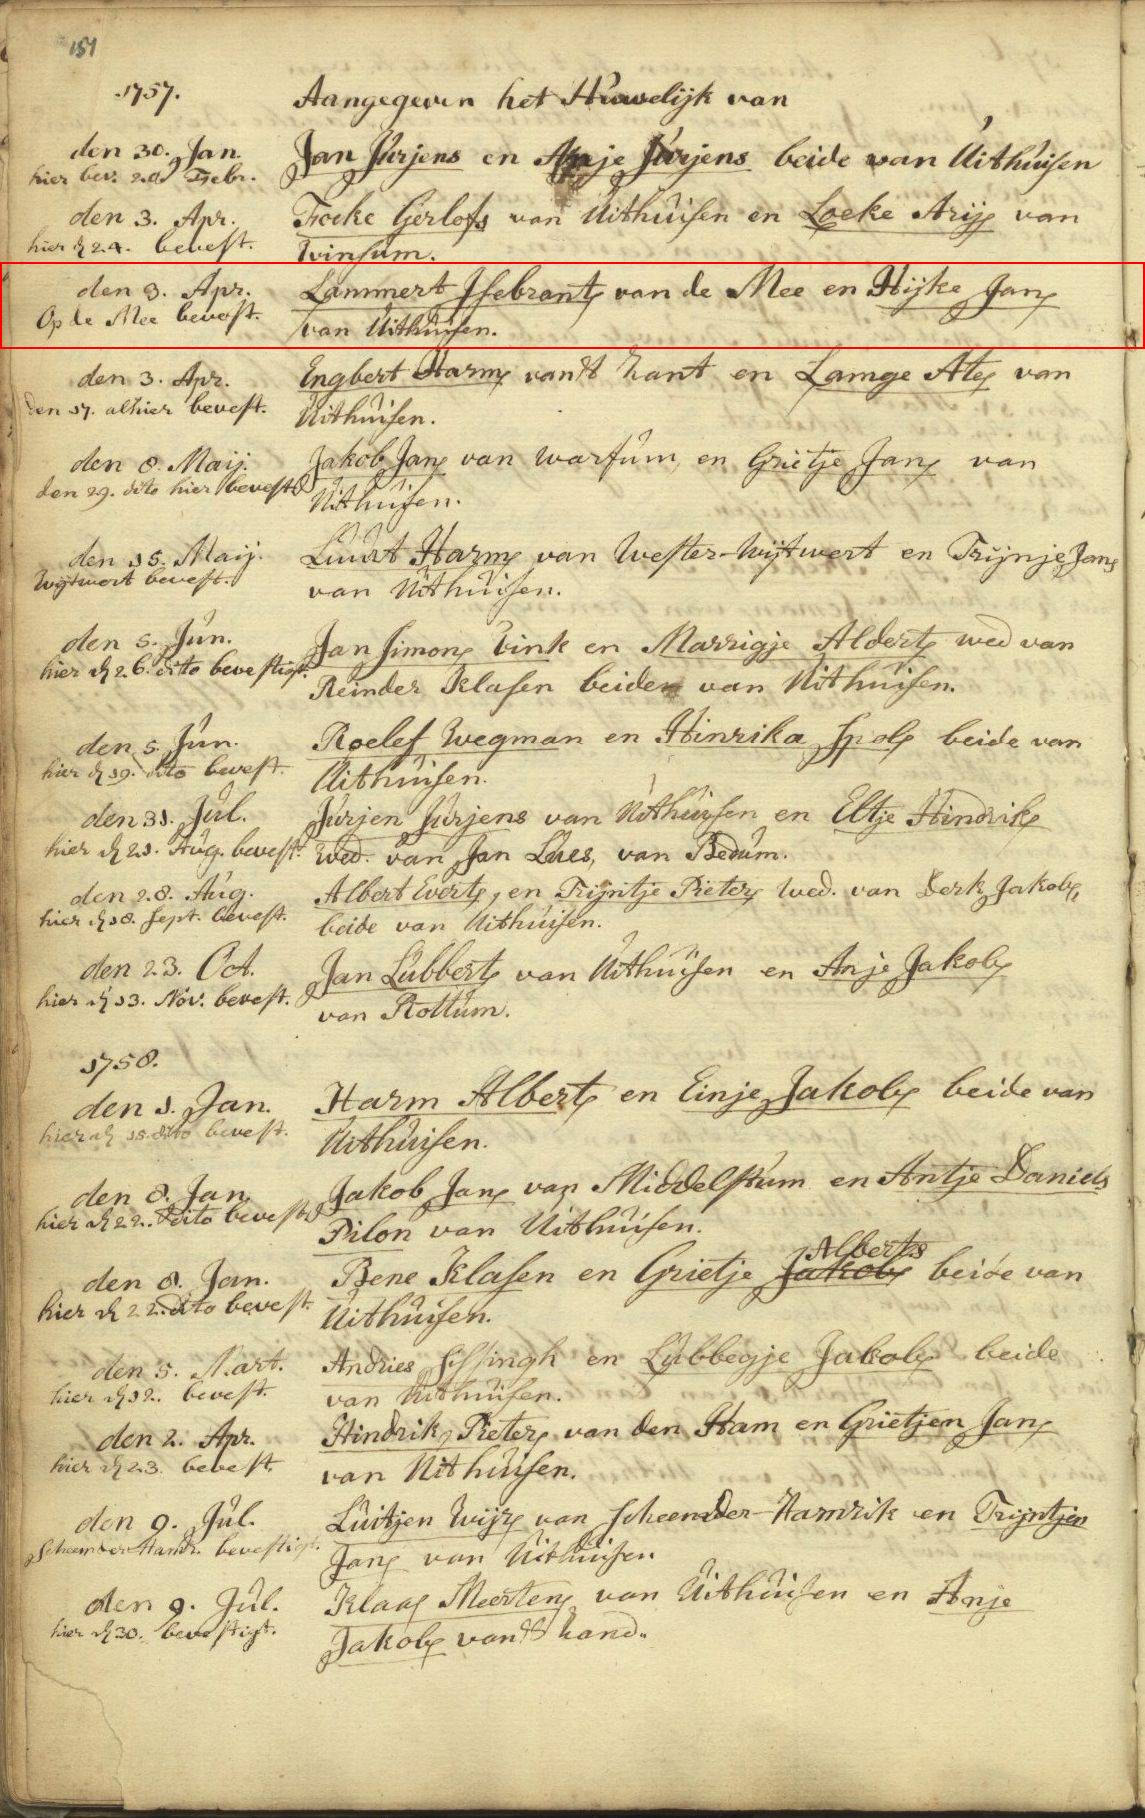 151
1757.
Aangegeven het Huwelijk van
den 30. Jan.
hier bev. 20. Febr.
Jan Jurjens en Anje Jurjens beide van Uithuisen
den 3. Apr.
hier d 24. bevest.
Focke Gerlofs van Uithuisen en Loeke Arijs van
Winsum.
den 3. Apr.
Op de Mee bevest.
Lammert Isebrants van de Mee en Hijke Jans
van Uithuisen.
den 3. Apr.
den 17. alhier bevest.
Engbert Harms van't Zant en Lamge Ates van
Uithuisen.
den 8. Maij.
den 29. dito hier bevest
Jakob Jans van Warfum, en Grietje Jans van
Uithuisen.
den 15. Maij.
Wijtwert bevest.
Luurt Harms van Wester-Wijtwert en Trijnje Jans
van Uithuisen.
den 5. Jun.
hier d 26. dito bevestigt.
Jan Simons Vink en Marrigje Alderts wed van
Reinder Klasen beiden van Uithuisen.
den 5. Jun.
hier d 19. dito bevest.
Roelef Wegman en Hinrika Spols beide van
Uithuisen.
den 31. Jul.
hier d 21. Aug. bevest.
Jurjen Jurjens van Uithuisen en Eltje Hindriks
wed. van Jan Lues, van Bedum.
den 28. Aug.
hier d 18. Sept. bevest.
Albert Everts, en Trijntje Pieters wed. van Derk Jakobs,
beide van Uithuisen.
den 23. Oct.
hier d 13. Nov. bevest.
Jan Lubberts van Uithuisen en Anje Jakobs
van Rottum.
1758.
den 1. Jan.
hier d 15. dito bevest.
Harm Alberts en Einje Jakobs beide van
Uithuisen.
den 8. Jan.
hier d 22. dito bevest
Jakob Jans van Middelstum en Antje Daniels
Pilon van Uithuisen.
den 8. Jan.
hier d 22. dito bevest.
Alberts
Bene Klasen en Grietje Jakobs beide van
Uithuisen.
den 5. Mart.
hier d 12. bevest.
Andries Sissingh en Lubbegje Jakobs beide
van Uithuisen.
den 2. Apr.
hier d 23. bevest.
Hindrik Pieters van den Ham en Grietjen Jans
van Uithuisen.
den 9. Jul.
Scheemder Hamr. bevestigt.
Luitjen Wijrs van Scheemder-Hamrik en Trijntjen
Jans van Uithuisen
den 9. Jul.
hier d 30. bevestigt.
Klaas Meertens van Uithuisen en Anje
Jakobs van't Zand.